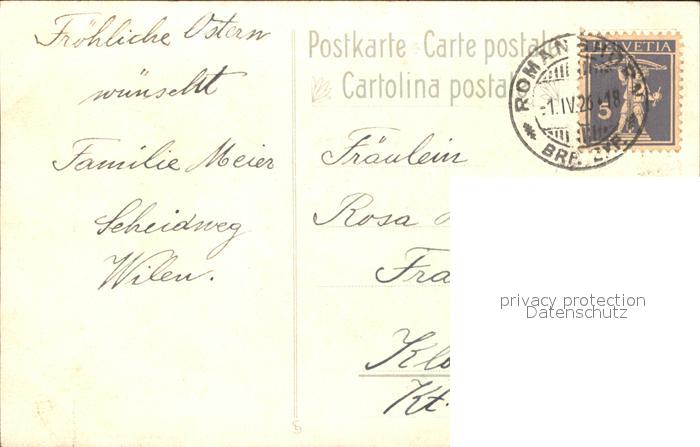 Fröhliche Ostern
wünscht
Familie Meier
Scheidweg
Wilen.
Postkarte - Carte postale
Cartolina posta
HELVETIA
5
ROMANSHORN
-1.IV.26-18
Fräulein
Rosa
Fra
Klo
Kt.
privacy protection
Datenschutz